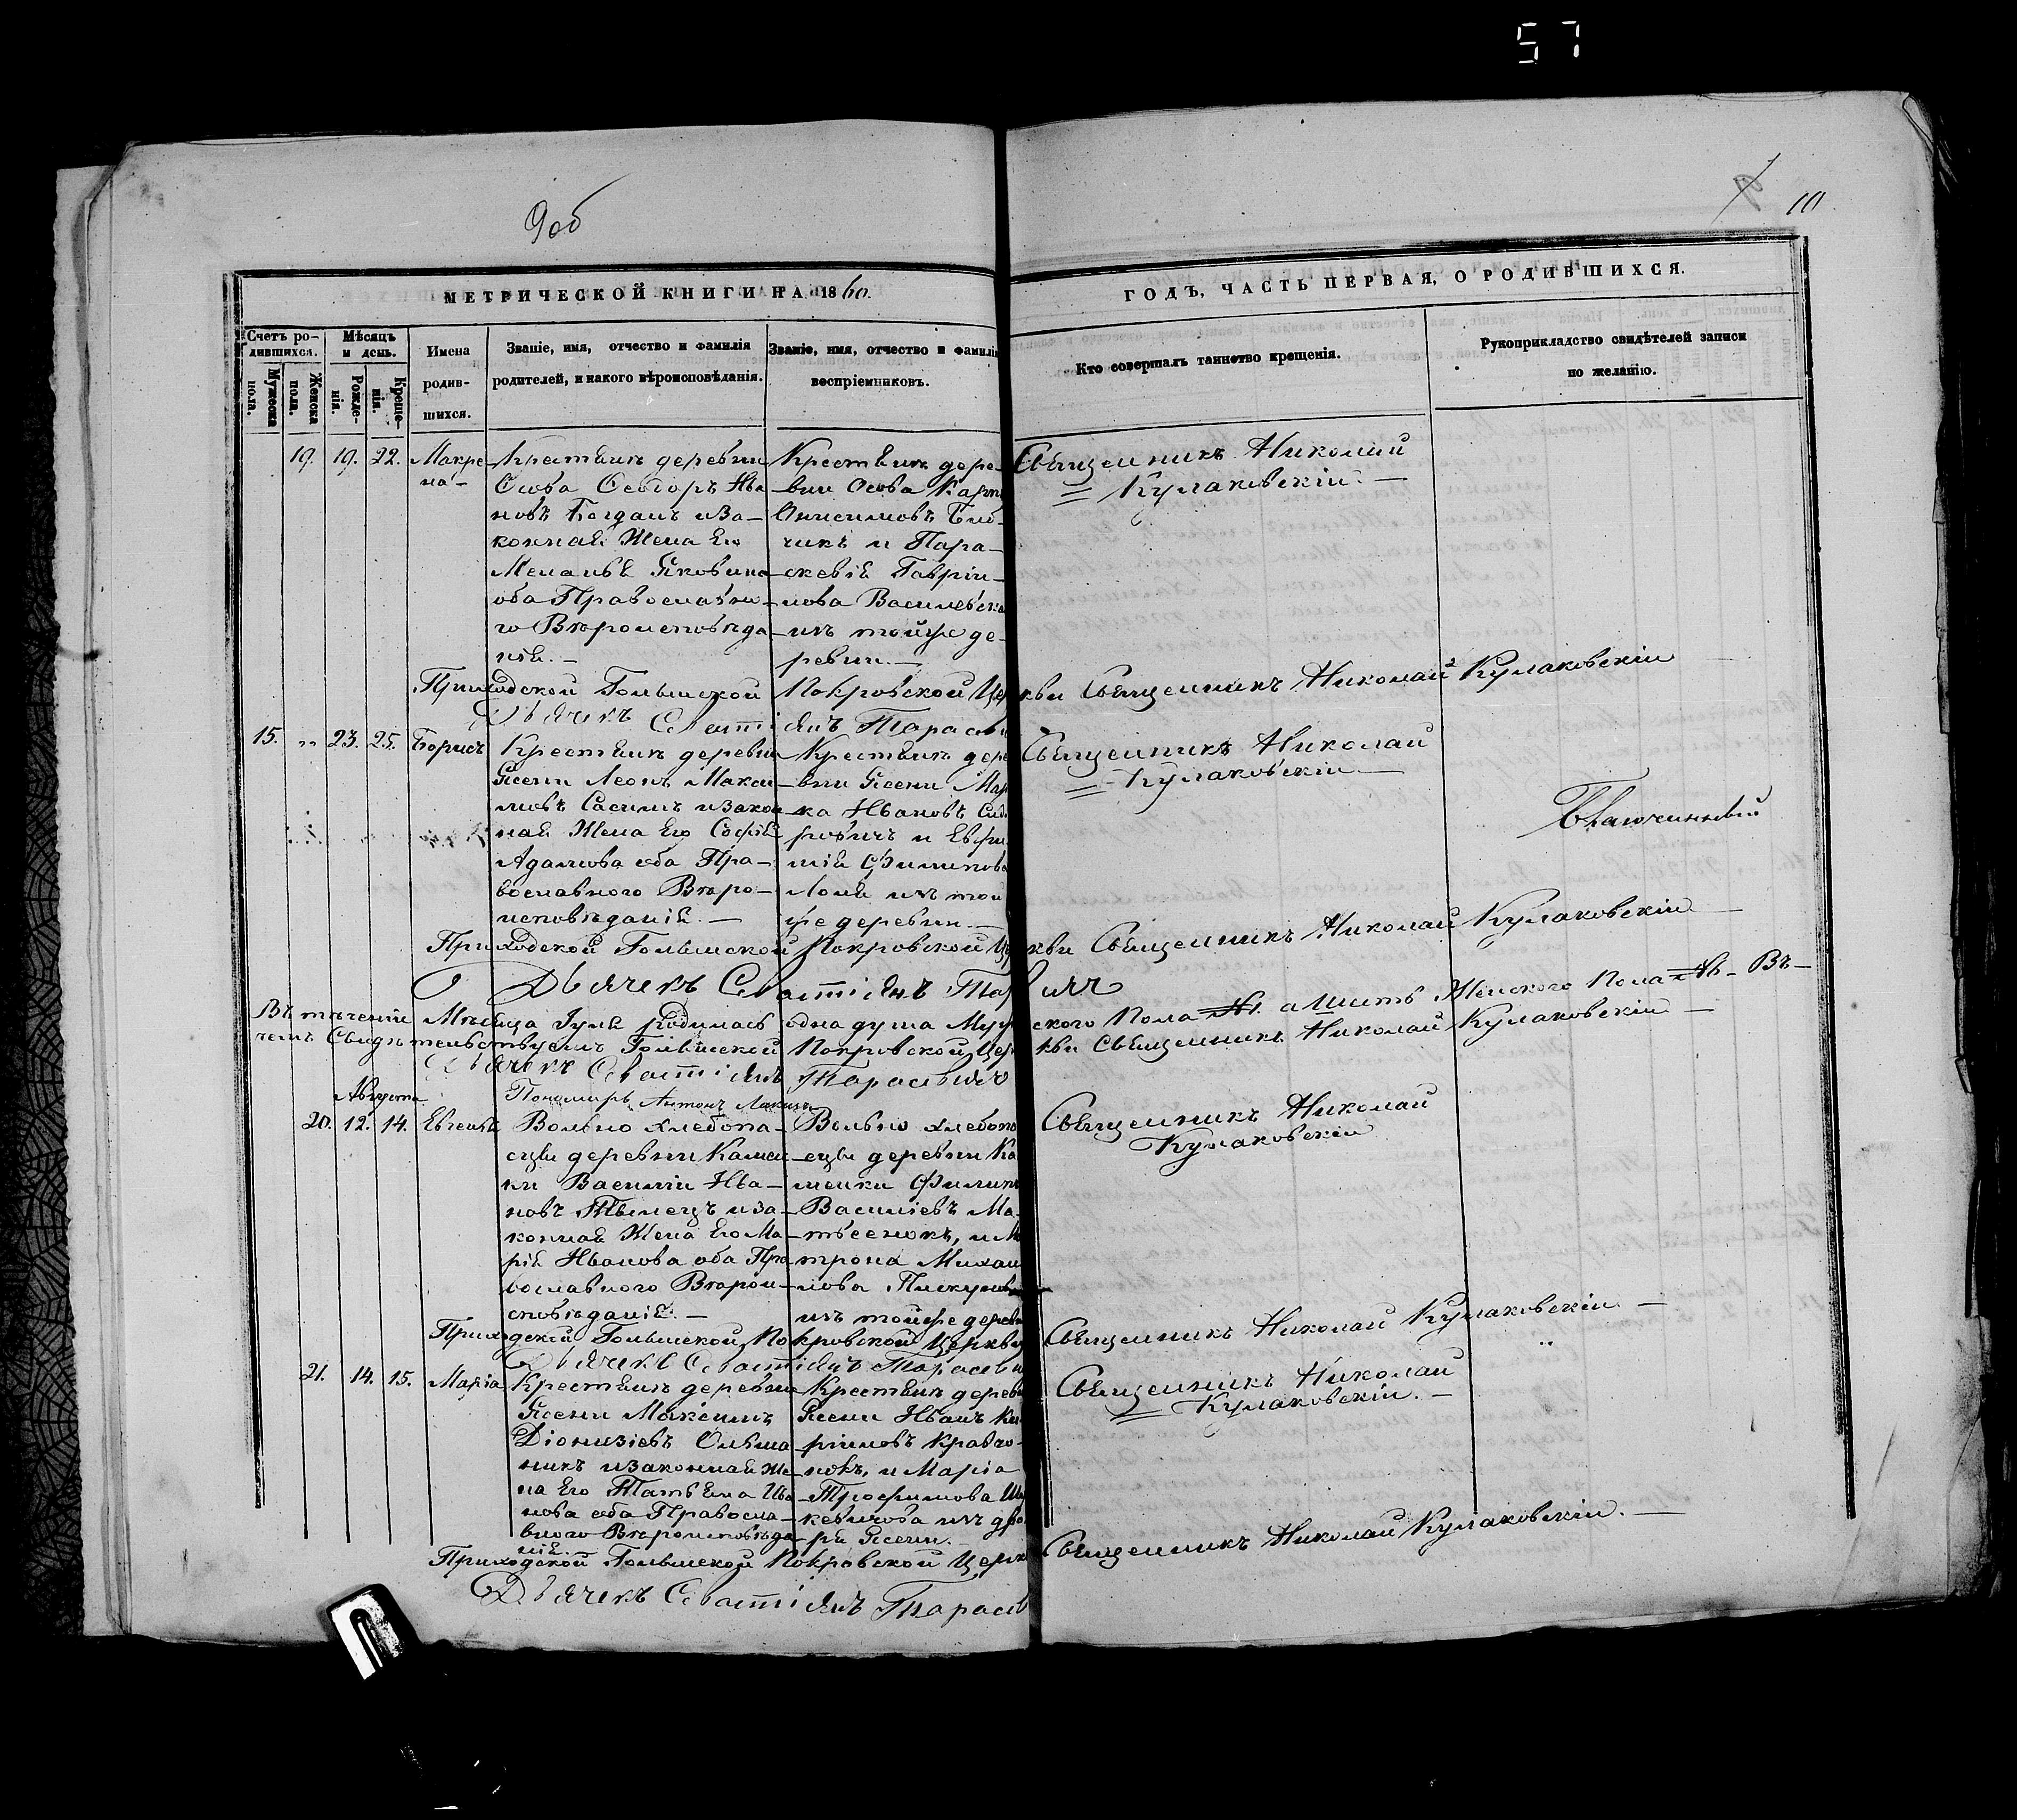 57
9 об
10
МЕТРИЧЕСКОЙ КНИГИ НА 1860.
ГОДЪ, ЧАСТЬ ПЕРВАЯ, О РОДИВШИХСЯ.
Счетъ ро-
дившихся.
Мужеска
пола.
Женска
пола.
Мѣсяцъ
и день.
Рожде-
нія.
Креще-
нія.
Имена
родив-
шихся.
Званіе, имя, отчество и фамилія
родителей, и какого вѣроисповѣданія.
Званіе, имя, отчество и фамилія
воспріемниковъ.
Кто совершалъ таинство крещенія.
Рукоприкладство свидѣтелей записи
по желанію.
19. 19. 22. Макре-
на
Крестьянъ деревни
Осова Ѳеодоръ Ива
новъ Богданъ иЗа-
конная Жена Его
Меланья Яковлена
оба Православна-
го Вѣроисповѣда
нія.
Крестьянъ дере-
вни Осова
Онисимовъ
чикъ и Пара-
скевія Гаврии-
лова
изъ тойже де-
ревни.
Священникъ Николай
Кулаковскій
Приходской Голынской Покровской Церкви Священникъ Николай Кулаковскій
Дьячекъ Севастіянъ Тарасевич
15. „ 23. 25. Борисъ
Крестьянъ деревни
Ясени Леонъ Макси
мовъ Саснимъ изакон
ная Жена Его Софія
Адамова оба Пра-
вославного Вѣро-
исповѣданія.
Крестьянъ дере
вни Ясени Мар
ка Ивановъ Сид
ровичъ и Евфи
мія Филипова
изъ той
же деревни.
Священникъ Николай
Кулаковскій
Благочинный
Приходской Голынской Покровской Церкви Священникъ Николай Кулаковскій
Дьячекъ Севастіянъ
Въ теченіи Мѣсяца Іуля родилась одна душа Мужеского Пола №1. а Шесть Женского Пола №6. Въ
чемъ Свидѣтельствуемъ Голынской Покровской Церкви Священникъ Николай Кулаковскій
Дьячекъ Севастіянъ Тарасевичъ
Пономарь Антонъ
Августа
20. 12. 14. Евгенія
Вольно хлебопа-
сцы деревни Камен
ки Василій Ива-
новъ иза-
конная Жена Его Ма-
рія Иванова оба Пра
вославного Вѣрои-
сповѣданія.
Вольно хлебопа
сцы деревни Ка
менки Филипъ
Василіевъ Ма-
твеенокъ, и М
трона Михаи
лова
изъ тойже деревни
Священникъ Николай
Кулаковскій
Приходской Голынской Покровской Церкви Священникъ Николай Кулаковскій
Дьячекъ Севастіянъ Тарасевич
21. 14. 15. Марія
Крестьянъ деревни
Ясени Максимъ
Діонизіевъ Ольша
никъ изаконная Же
на Его Татьяна Ива
нова оба Правосла-
вного Вѣроисповѣда
нія.
Крестьянъ деревни
Ясени Иванъ Ки
риловъ Кравчо-
нокъ, и Марія
Трофимова
изъ
Ясени.
Священникъ Николай
Кулаковскій.
Приходской Голынской Покровской Церкви Священникъ Николай Кулаковскій.
Дьячекъ Севастіянъ Тарасев